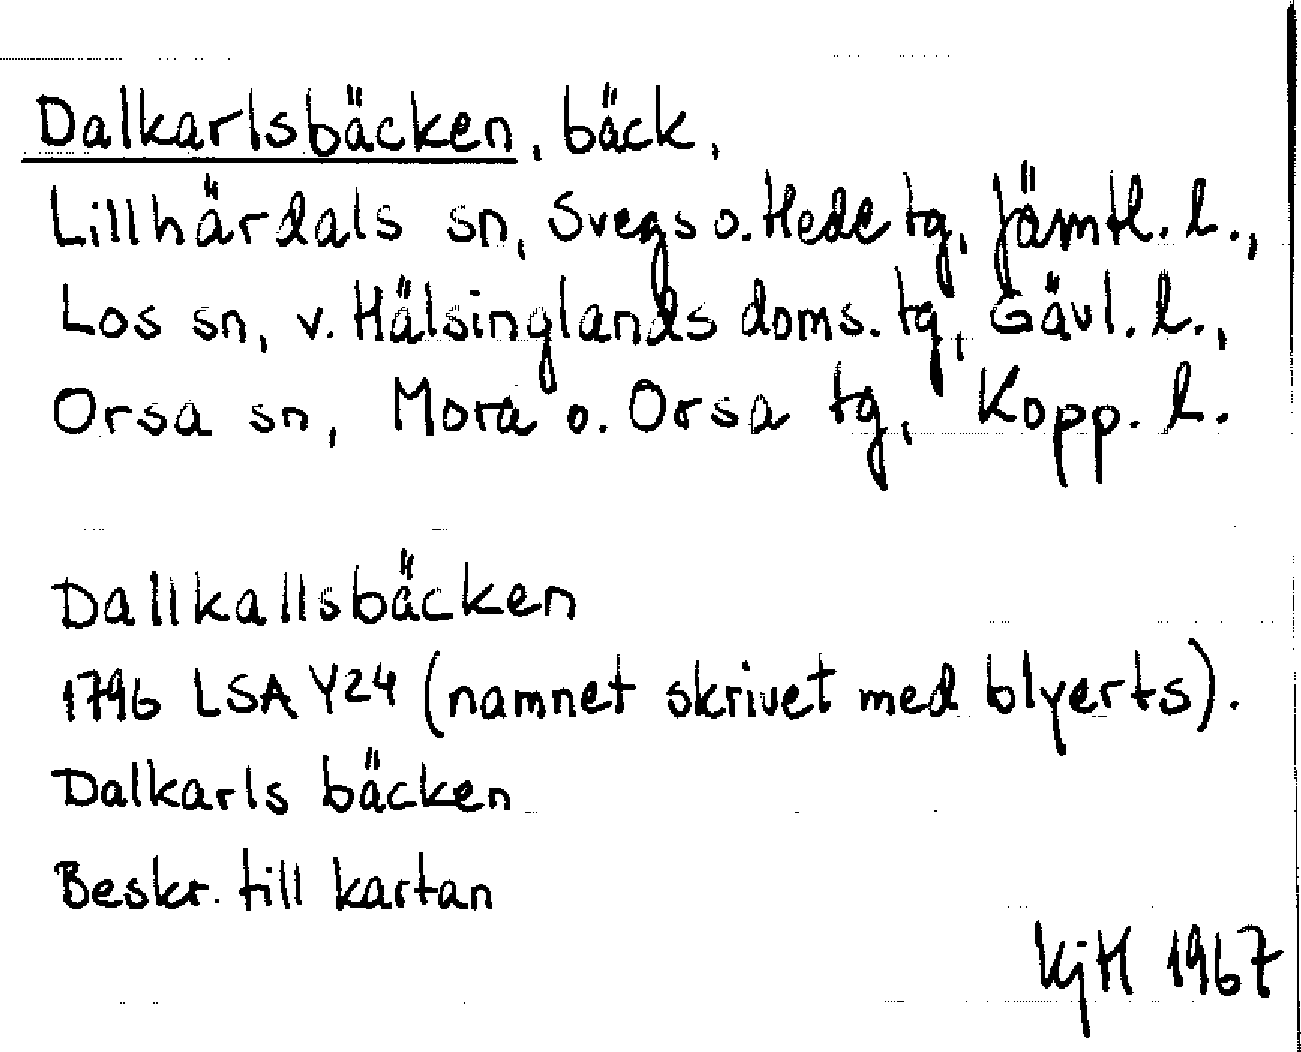 Dalkarlsbäcken, bäck,
Lillhärdals sn, Svegs o. Hede tg, Jämtl. l.,
Los sn, v. Hälsinglands doms. tg, Gävl. l.,
Orsa sn, Mora o. Orsa tg, Kopp. l.
Dallkallsbäcken
1796 LSA Y24 (namnet skrivet med blyerts).
Dalkarls bäcken
Beskr. till kartan
KjH 1967